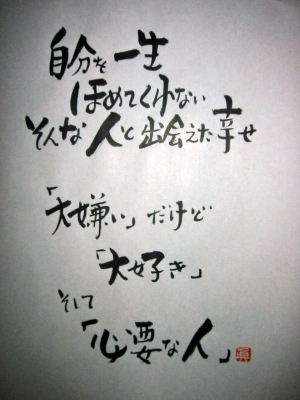 自分を一生
ほめてくれない
そんな人と出会えた幸せ
「大嫌い」だけど
「大好き」
そして
「必要な人」